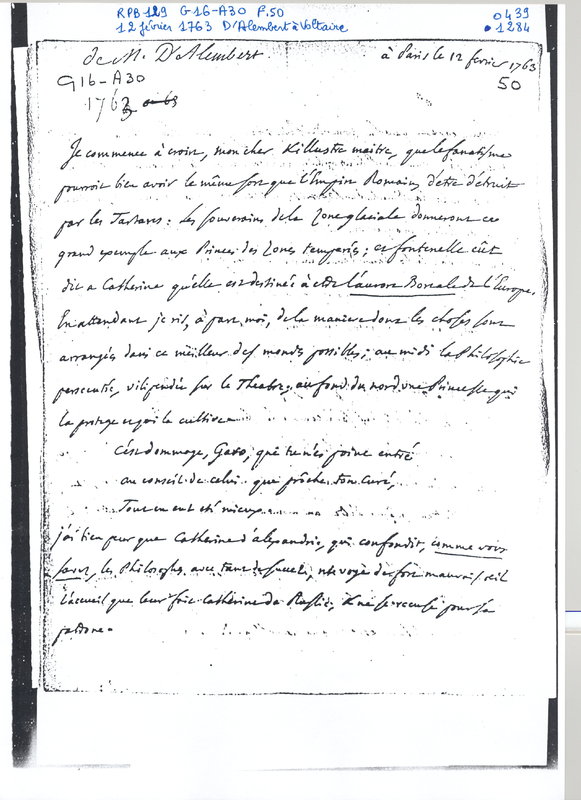 RPB 129 G16-A30 F.50
12 février 1763 D'Alembert à Voltaire
0439
• 1284
de M. D'Alembert
à Paris le 12 fevrier 1763
G16-A30
50
1763
Je commence à croire, mon cher & illustre maitre, que le fanatisme
pourroit bien avoir le même sort que l'Empire Romain, d'etre détruit
par les Tartares : les souverains de la Zone glaciale donneront ce
grand exemple aux Princes des Zones temperées ; et fontenelle eût
dit a Catherine qu'elle est destinée à etre l'aurore Boreale de l'Europe.
En attendant je ris, à part moi, de la maniere dont les choses sont
arrangées dans ce meilleur des mondes possibles ; au midi la Philosophie
persecutée, vilipendée sur le Theatre ; au fond du nord une Princesse qui
la protege et qui la cultive.
C'est dommage, Garo, que tu n'es point entré
au conseil de celui que prêche ton curé,
Tout en eut été mieux
j'ai bien peur que Catherine d'alexandrie, qui confondit, comme vous
savez, les Philosophes avec tant de succès, ne voye de fort mauvais œil
l'accueil que leur fait Catherine de Russie, & ne se recuse pour sa
patrone.